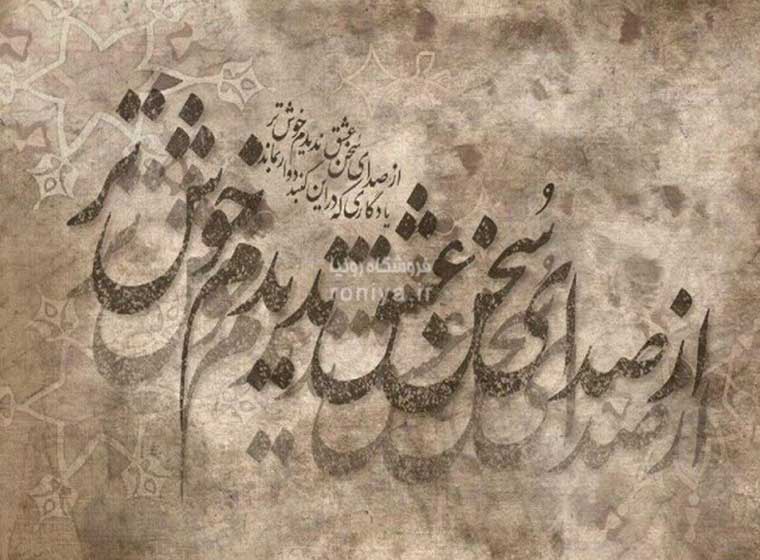 از صدای سُخن عشق ندیدم خوش تر
یادگاری که در این گنبد دوار بماند
از صدای سُخن عشق ندیدم خوش تر
فروشگاه رونیا
roniya.ir